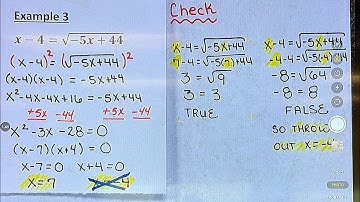 Example 3
x − 4 = √−5x + 44
(x-4)² = (√-5x+44)²
(x-4)(x-4) = -5x+44
x²-4x-4x+16 = -5x+44
+5x -44 +5x -44
x²-3x-28=0
(x-7)(x+4)=0
x-7=0 x+4=0
x=7 x=-4
Check
x-4=√-5x+44
7-4=√-5(7)+44
3 = √9
3 = 3
TRUE
x-4=√-5x+44
-4-4=√-5(-4)+44
-8=√64
-8=8
FALSE
SO THROW
OUT x=-4